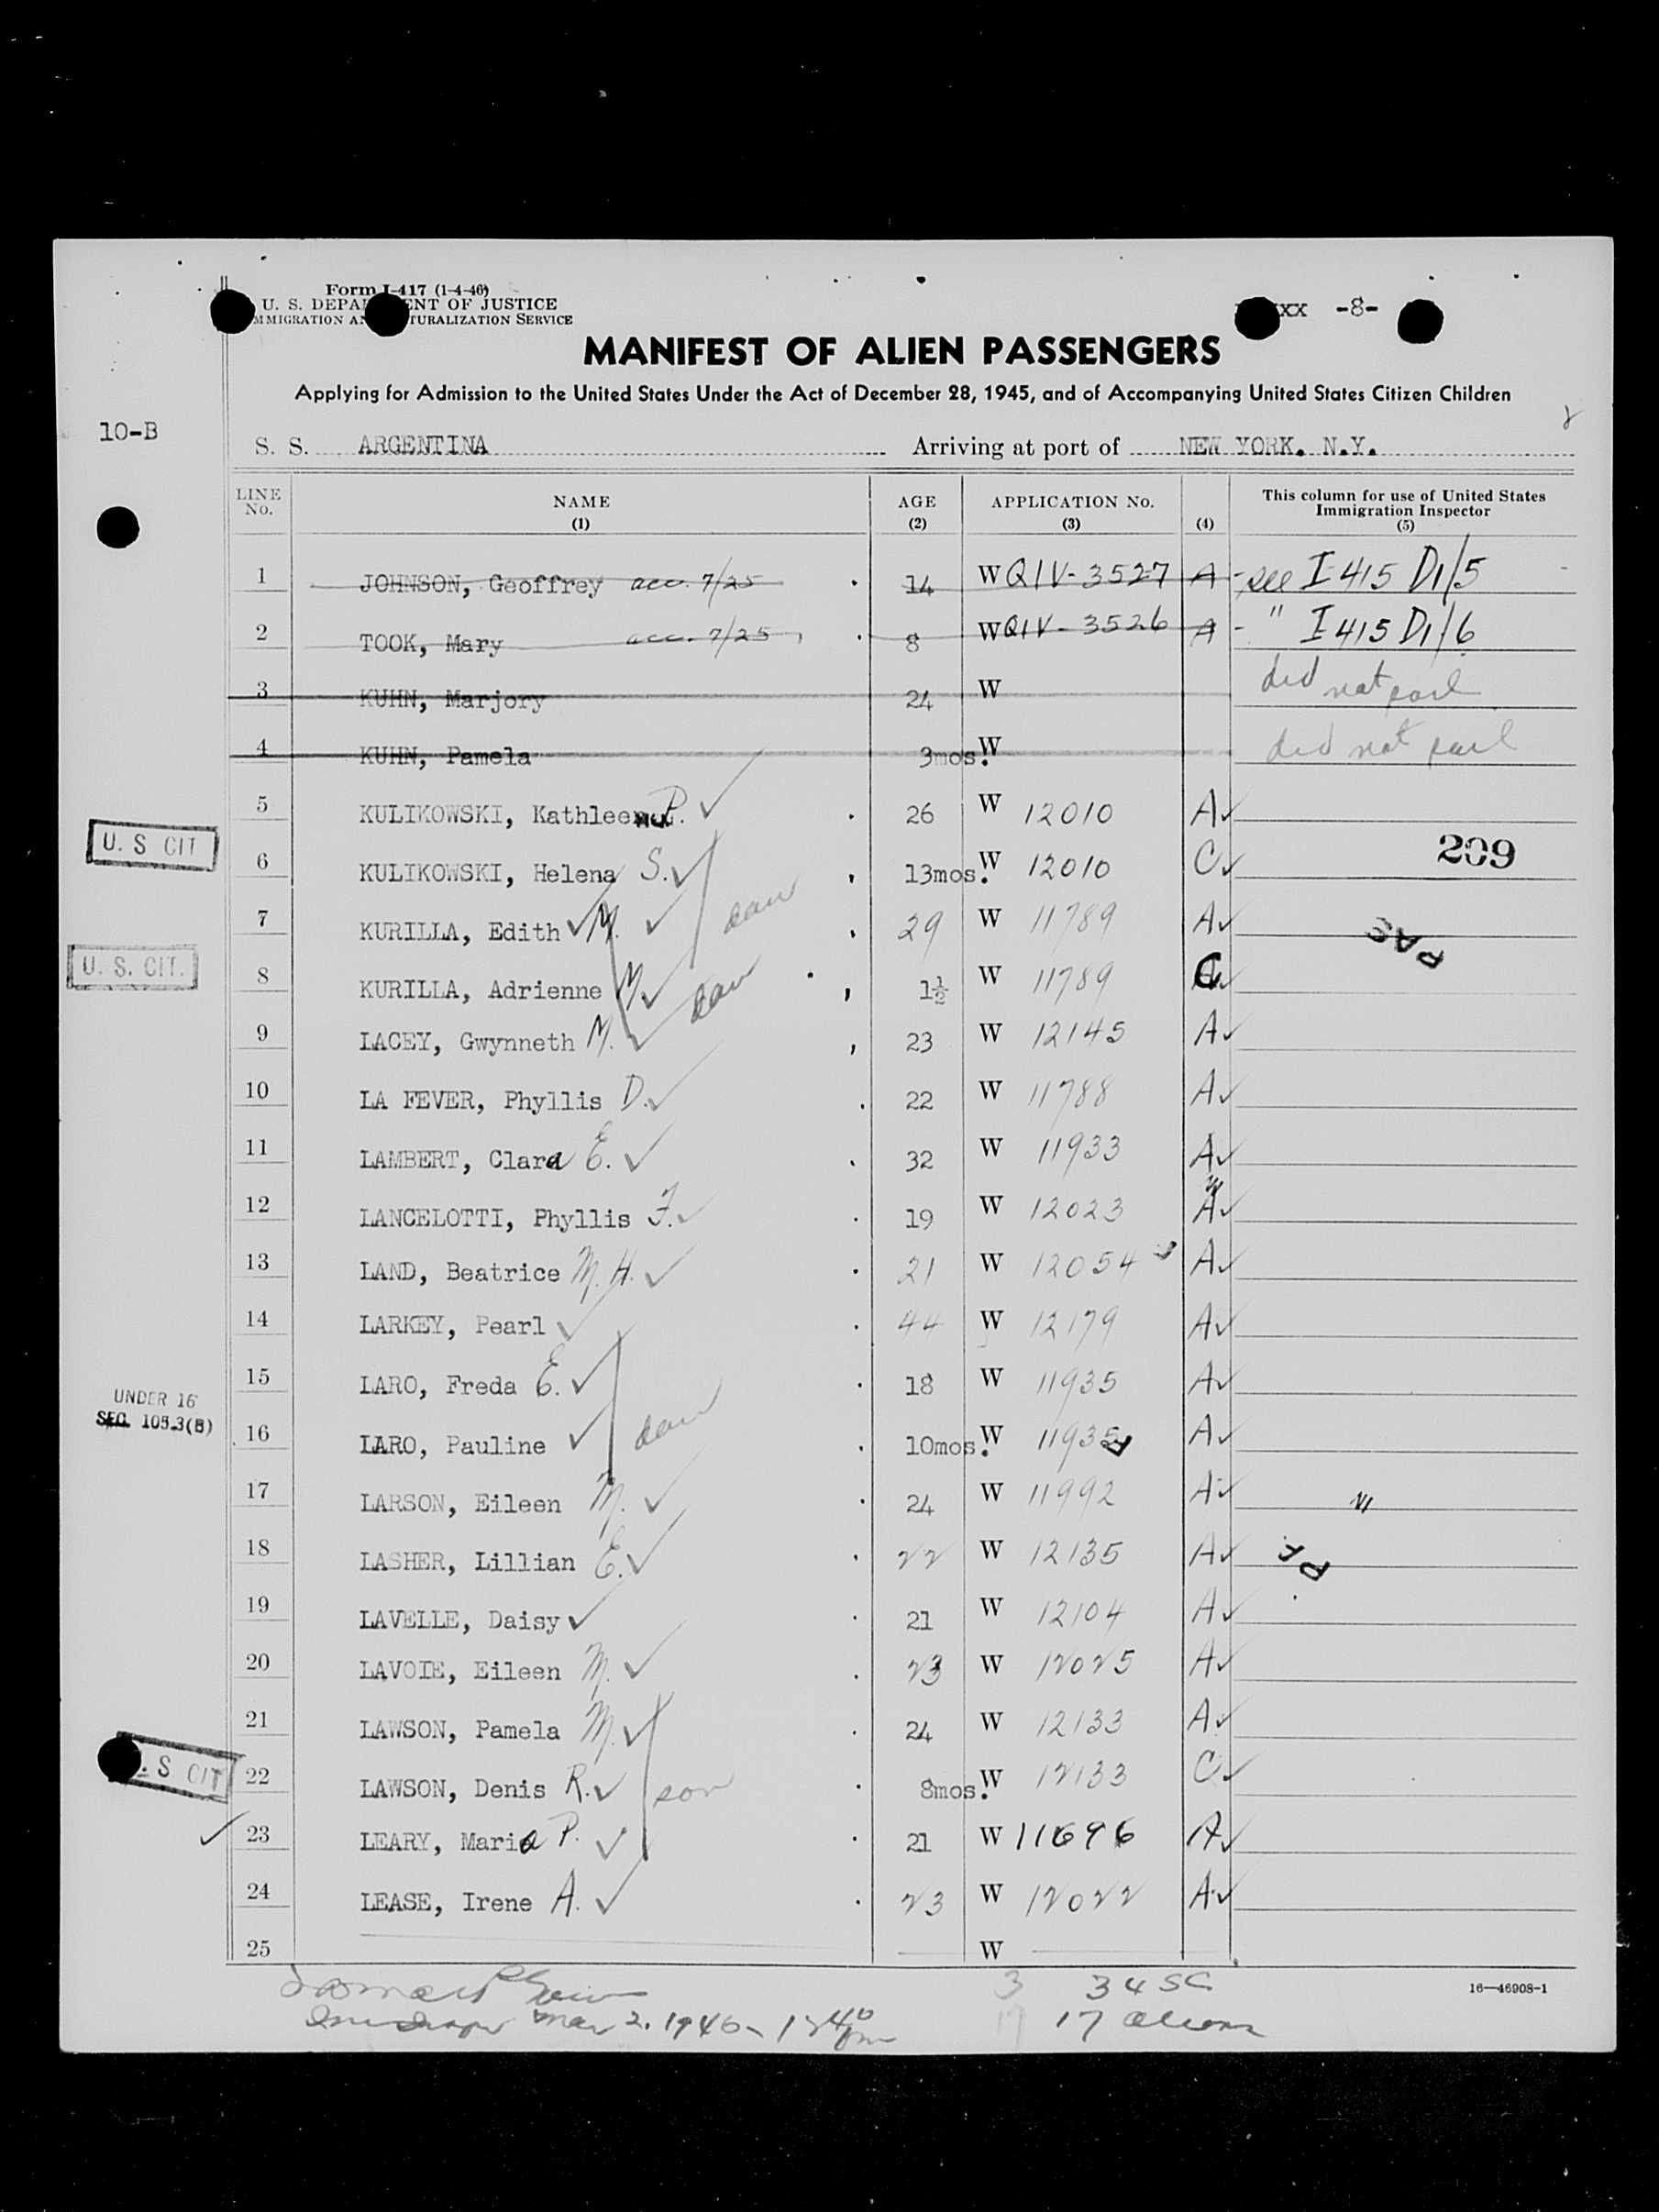 Form I-417 (1-4-46)
U. S. DEPA ENT OF JUSTICE
MMIGRATION A TURALIZATION SERVICE
xx -8-
MANIFEST OF ALIEN PASSENGERS
Applying for Admission to the United States Under the Act of December 28, 1945, and of Accompanying United States Citizen Children
10-B
S. S. ARGENTINA Arriving at port of NEW YORK, N.Y.
LINE No. NAME (1) AGE (2) APPLICATION No. (3) (4) This column for use of United States Immigration Inspector (5)
1 JOHNSON, Geoffrey acc. 7/25 14 W QIV-3527 A - see I-415 D1/5
2 TOOK, Mary acc. 7/25 8 W QIV-3526 A - " I 415 D1/6
3 KUHN, Marjory 24 W did not sail
4 KUHN, Pamela 3mos. W did not sail
5 KULIKOWSKI, Kathleen P. ✓ 26 W 12010 A✓
U. S CIT 6 KULIKOWSKI, Helena S.✓ 13mos. W 12010 C✓ 209
7 KURILLA, Edith ✓ M. ✓ dau 29 W 11789 A✓ PAS
U. S. CIT. 8 KURILLA, Adrienne M✓ dau 1½ W 11789 C✓
9 LACEY, Gwynneth M. ✓ 23 W 12145 A✓
10 LA FEVER, Phyllis D.✓ 22 W 11788 A✓
11 LAMBERT, Clara E. ✓ 32 W 11933 A✓
12 LANCELOTTI, Phyllis F.✓ 19 W 12023 A✓
13 LAND, Beatrice M. H. ✓ 21 W 12054 A✓
14 LARKEY, Pearl ✓ 44 W 12179 A✓
15 LARO, Freda E. ✓ 18 W 11935 A✓
UNDER 16
SEC. 105.3(B)
16 LARO, Pauline ✓ dau 10mos. W 11935A A✓
17 LARSON, Eileen M. ✓ 24 W 11992 A✓
18 LASHER, Lillian E.✓ 22 W 12135 A✓
19 LAVELLE, Daisy ✓ 21 W 12104 A✓
20 LAVOIE, Eileen M. ✓ 23 W 12025 A✓
21 LAWSON, Pamela M.✓ 24 W 12133 A✓
. S CIT 22 LAWSON, Denis R.✓ son 8mos. W 12133 C✓
✓ 23 LEARY, Maria P. ✓ 21 W 11696 A✓
24 LEASE, Irene A. ✓ 23 W 12022 A✓
25 W
3 3 USC
Mar 2, 1946
17 17 aliens
16—46908-1